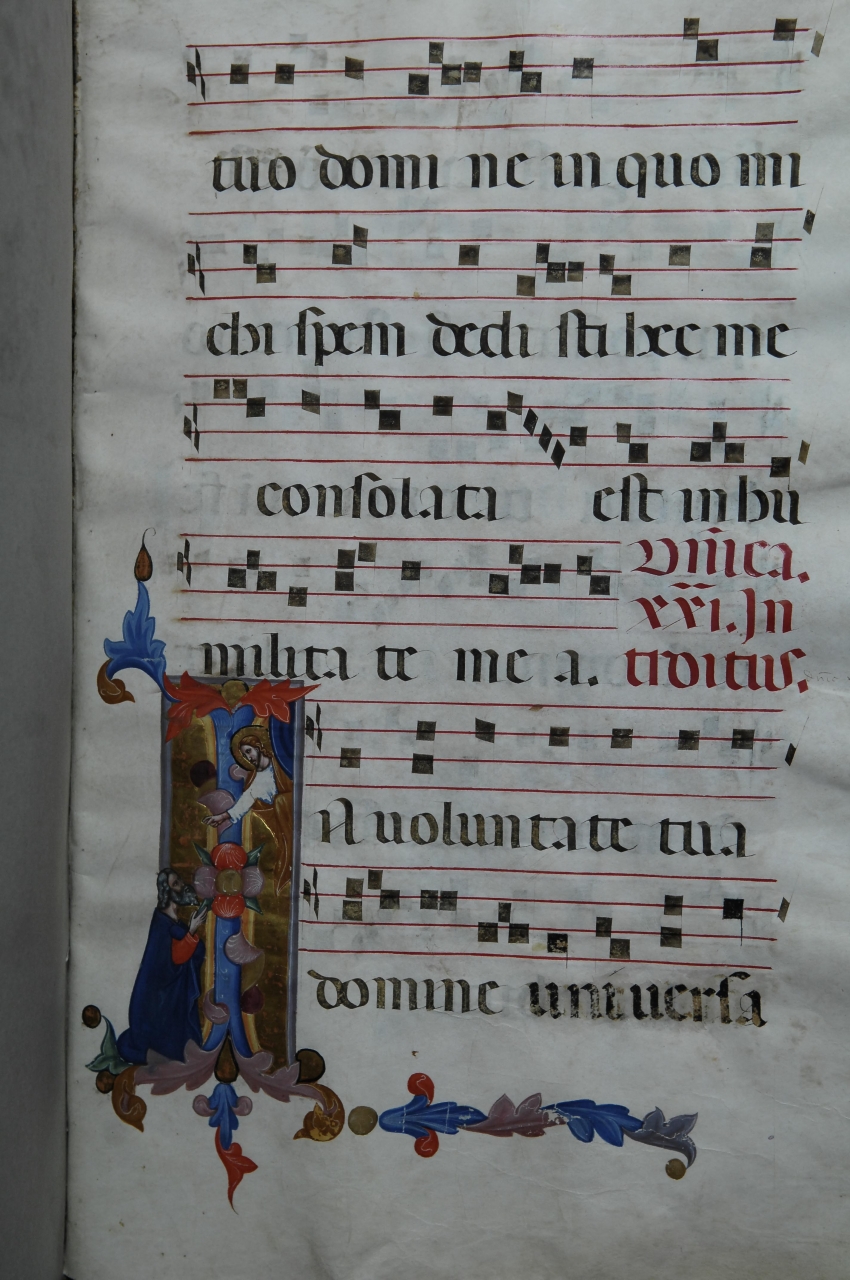 tuo domi ne in quo mi
chi spem dedi sti hec me
consolata est in hu
militate me a.
Dn̄ica.
xxi. In
troitus.
IN voluntate tua
domine universa